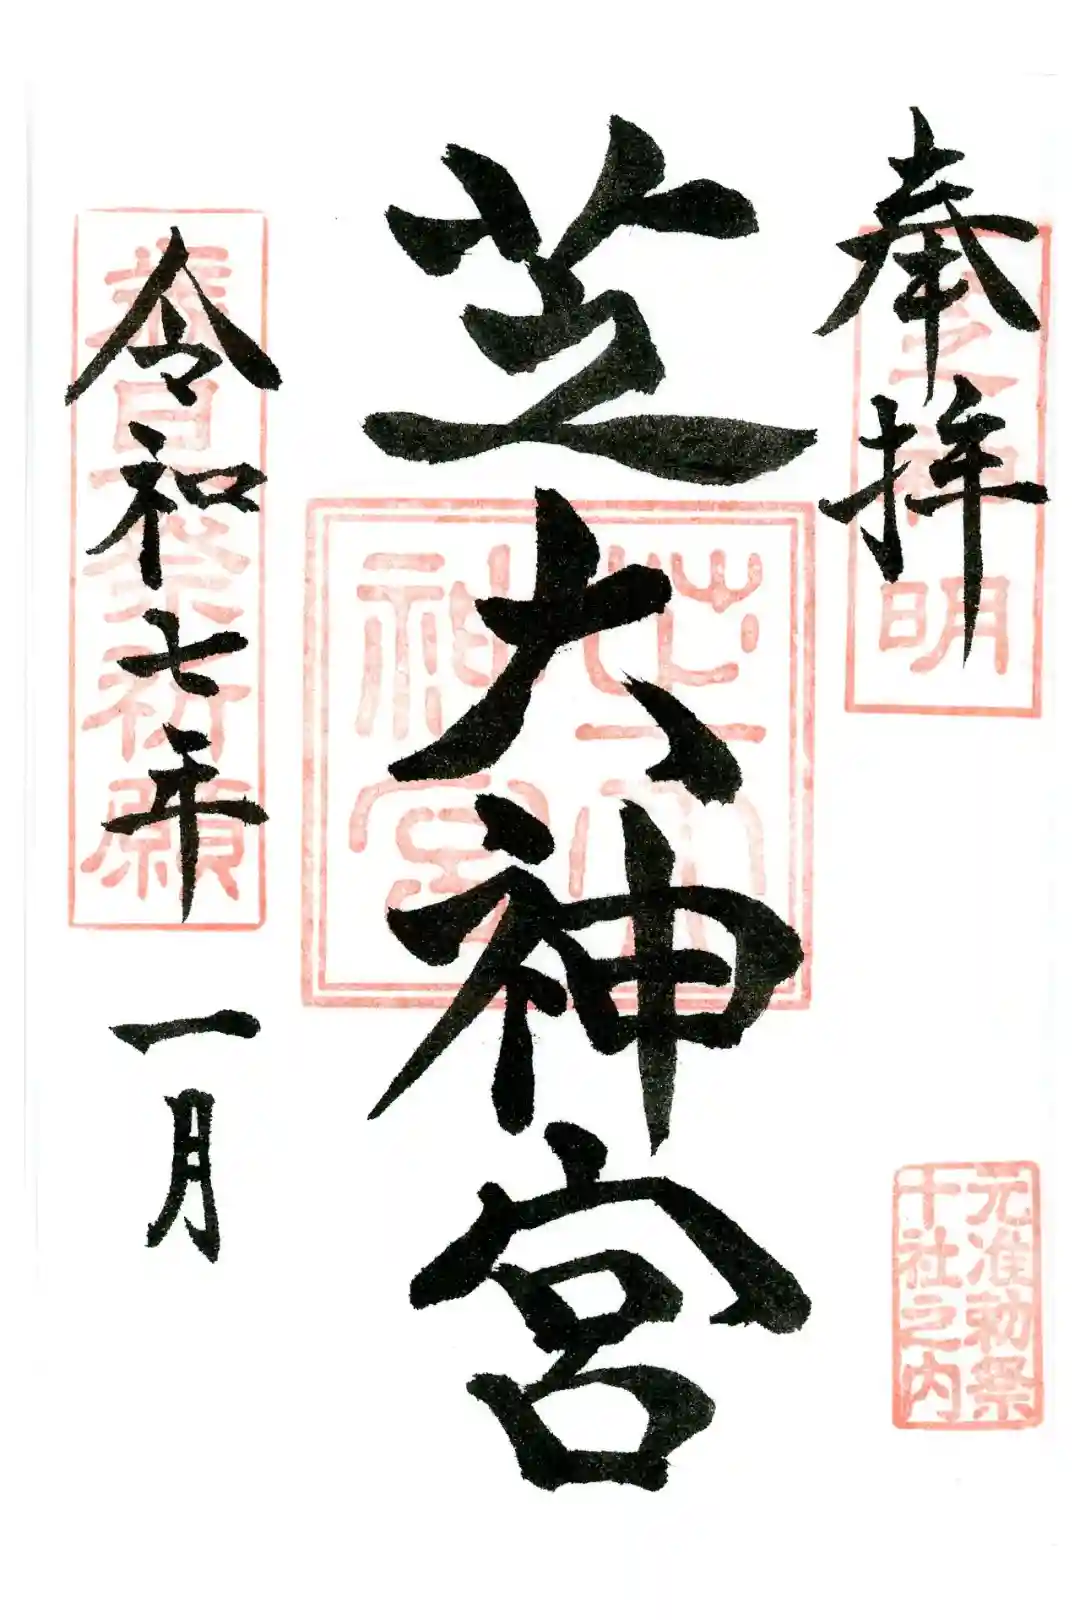 奉拝
芝神明
芝大神宮
芝大
神宮
令和七年
一月
元准勅祭
十社之内